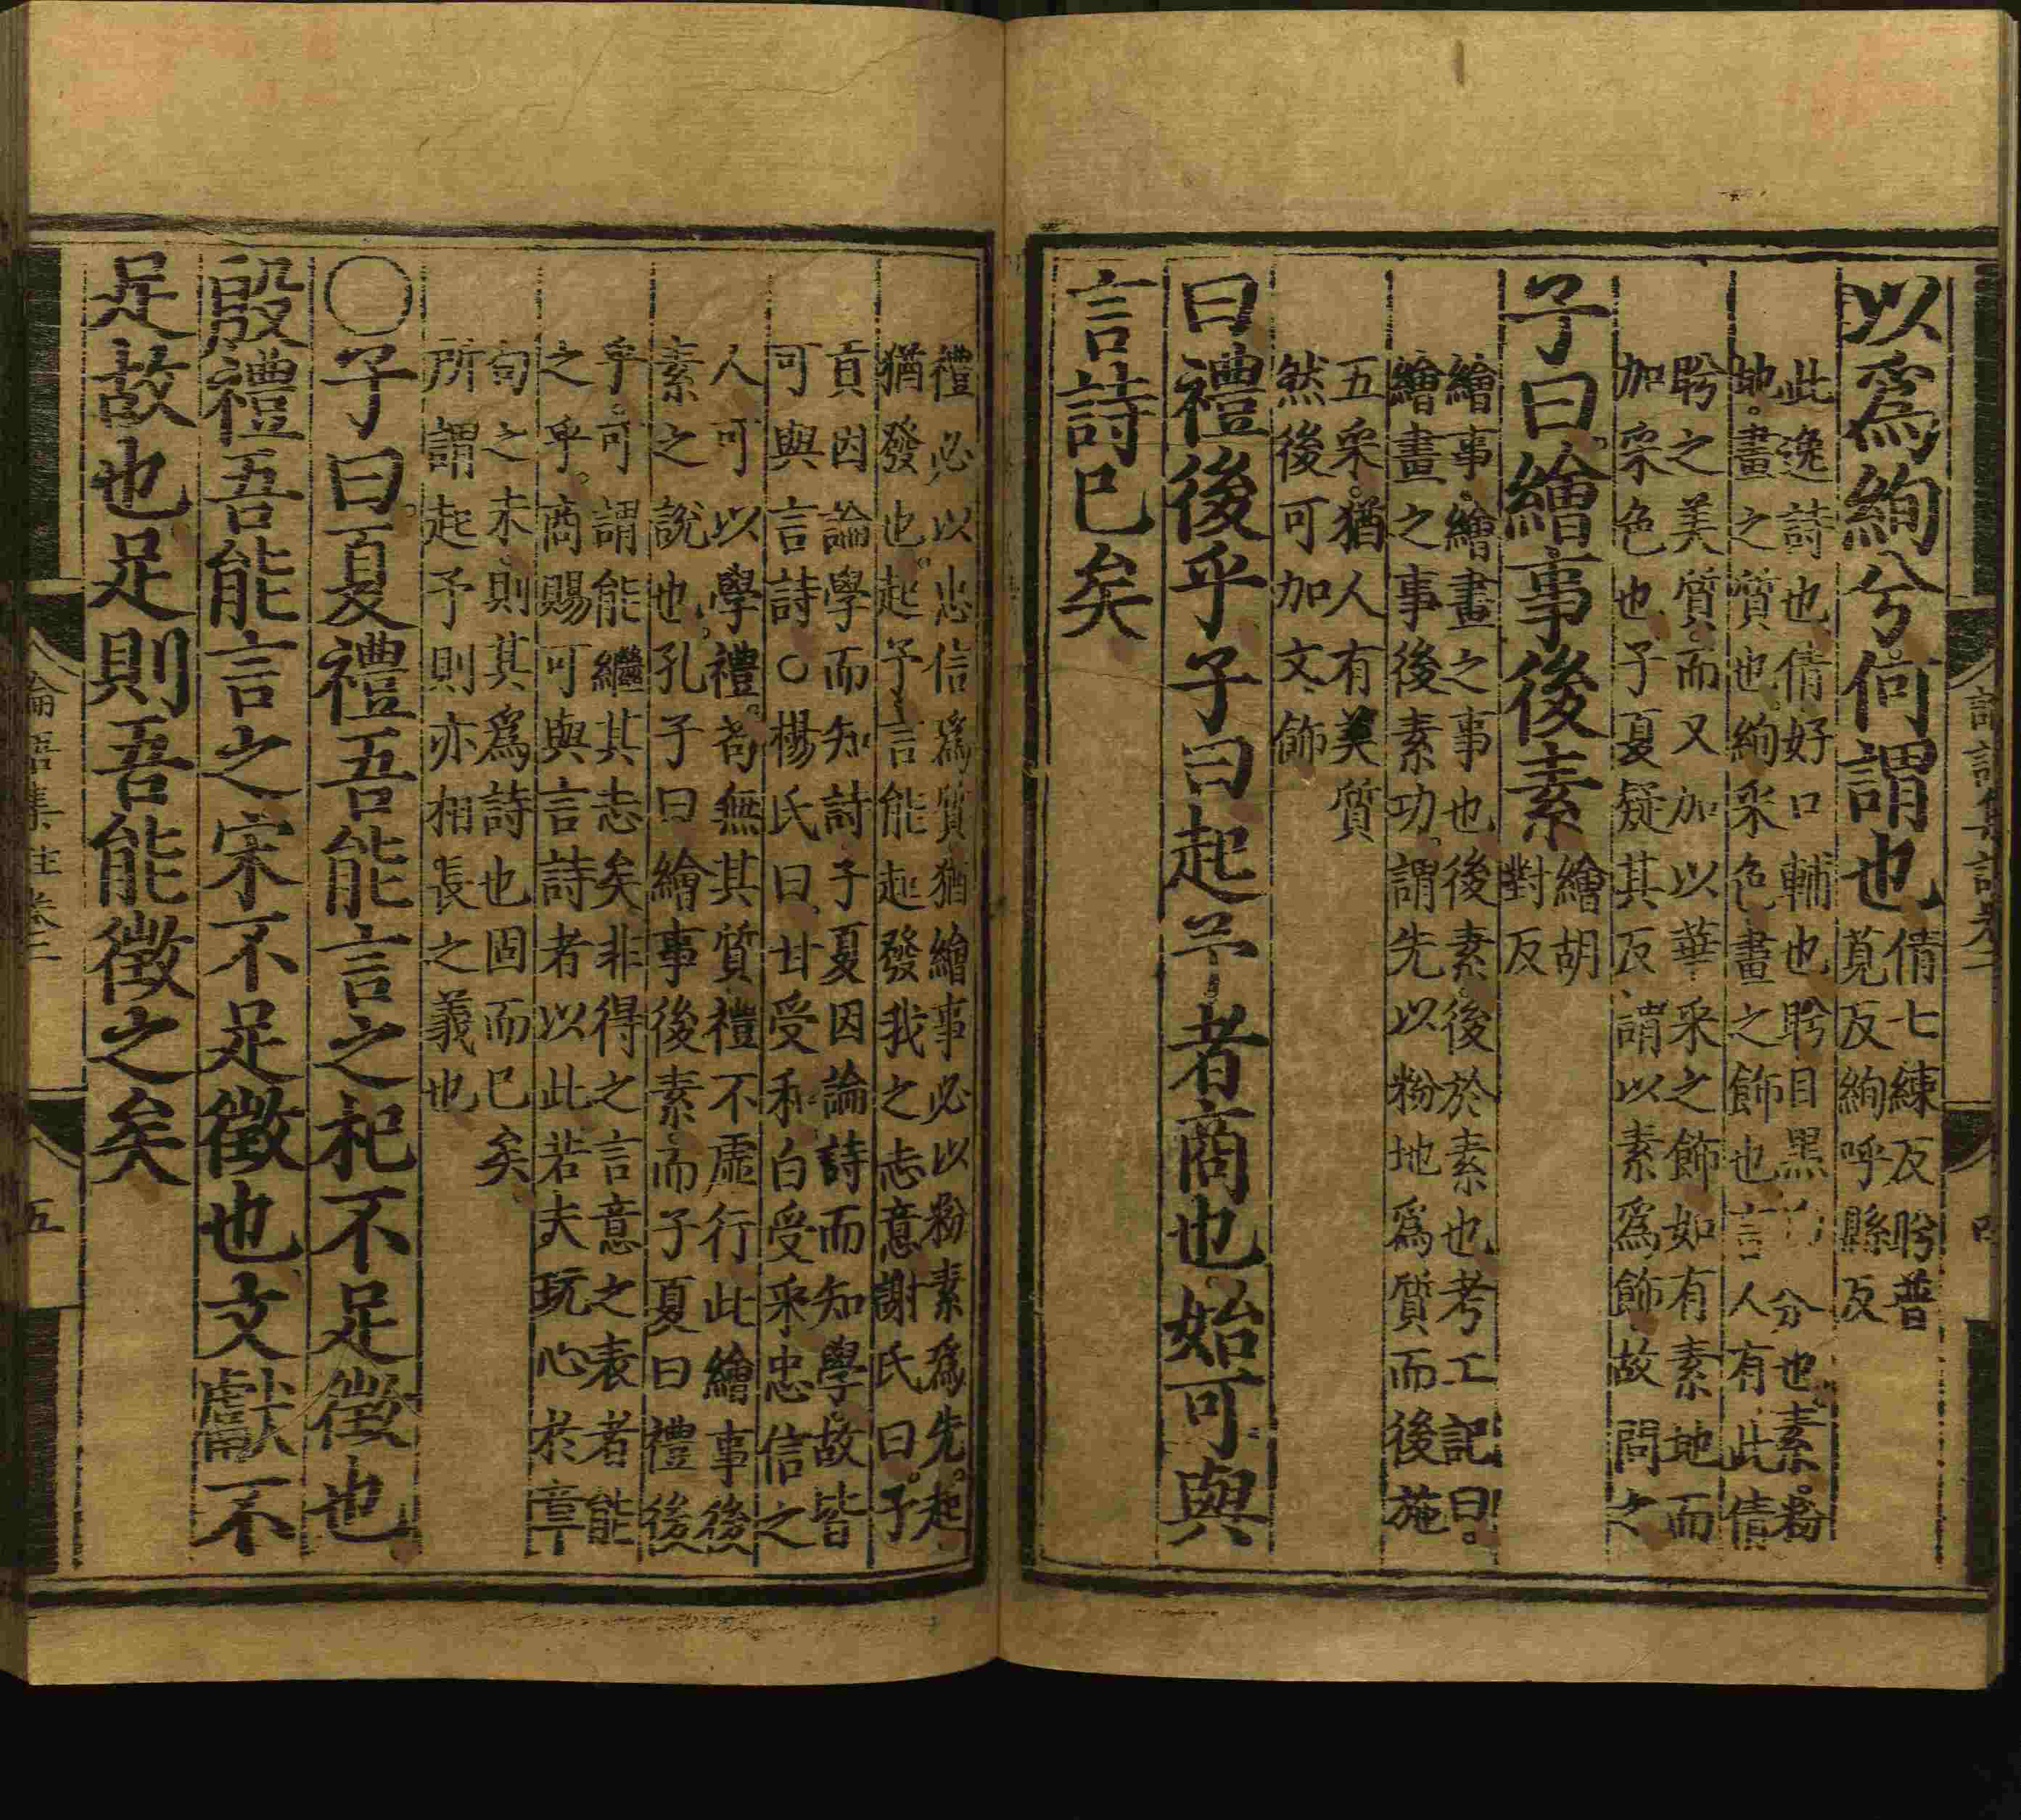 以爲絢兮何謂也倩七練反盼普
莧反絢呼縣反
此逸詩也倩好口輔也盼目黑分也素粉
地畫之質也絢采色畫之飾也言人有此倩
盼之美質而又加以華采之飾如有素地而
加采色也子夏疑其反謂以素爲飾故問之
子曰繪事後素繪胡
對反
繪事繪畫之事也後素後於素也考工記曰
繪畫之事後素功謂先以粉地爲質而後施
五采猶人有美質
然後可加文飾
曰禮後乎子曰起予者商也始可與
言詩已矣
禮必以忠信爲質猶繪事必以粉素爲先起
猶發也起予言能起發我之志意謝氏曰子
貢因論學而知詩子夏因論詩而知學故皆
可與言詩○楊氏曰甘受和白受采忠信之
人可以學禮苟無其質禮不虛行此繪事後
素之說也孔子曰繪事後素而子夏曰禮後
乎可謂能繼其志矣非得之言意之表者能
之乎商賜可與言詩者以此若夫玩心於章
句之末則其爲詩也固而已矣
所謂起予則亦相長之義也
○子曰夏禮吾能言之杞不足徵也
殷禮吾能言之宋不足徵也文獻不
足故也足則吾能徵之矣
論語集註卷二
五